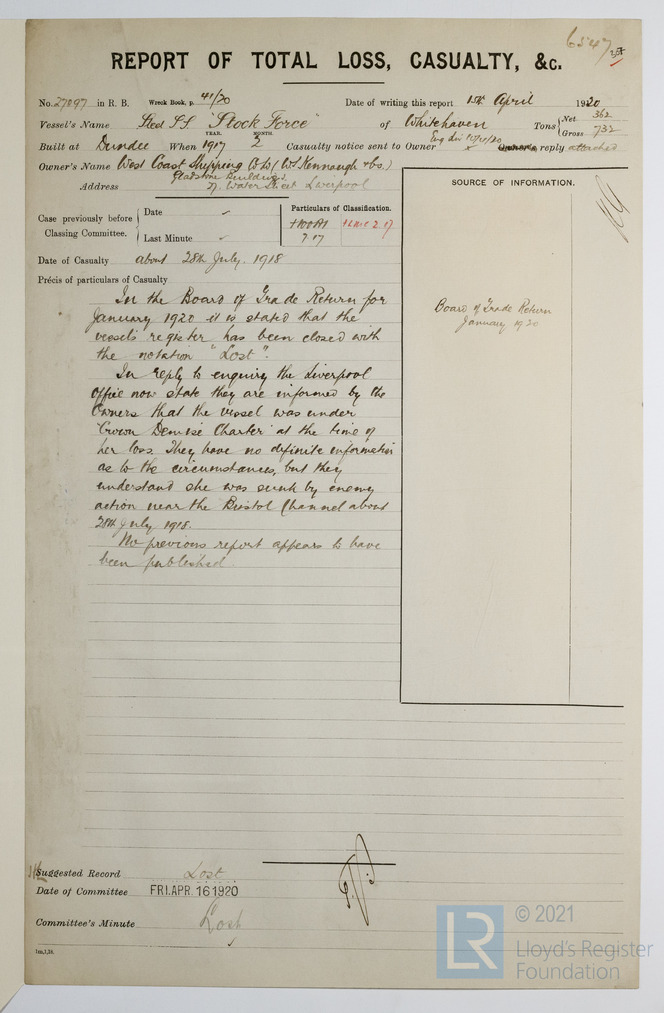 6547
REPORT OF TOTAL LOSS, CASUALTY, &c.
No. 27097 in R. B. Wreck Book, p. 41/20 Date of writing this report 15th April 1920
Vessel's Name Steel SS "Stock Force" of Whitehaven Tons Net 362 Gross 732
Built at Dundee When 1917 YEAR. 2 MONTH. Casualty notice sent to Owner reply attached
Owner's Name West Coast Shipping Co Ld (W.S. Kennaugh & Co.)
Address Gladstone Buildings
27, Water Street Liverpool
SOURCE OF INFORMATION.
Case previously before Classing Committee. Date Last Minute
Particulars of Classification.
+100A1 +LMC 2.17
7.17
Date of Casualty about 28th July. 1918
Précis of particulars of Casualty
In the Board of Trade Return for
January 1920 it is stated that the
vessel's register has been closed with
the notation "Lost".
In reply to enquiry the Liverpool
Office now state they are informed by the
Owners that the vessel was under
'Crown Demise Charter' at the time of
her loss. They have no definite information
as to the circumstances, but they
understand she was sunk by enemy
action near the Bristol Channel about
28th July 1918.
No previous report appears to have
been published
Board of Trade Return
January 1920
Suggested Record Lost
Date of Committee FRI. APR. 16 1920
Committee's Minute Lost
LR
© 2021
Lloyd's Register
Foundation